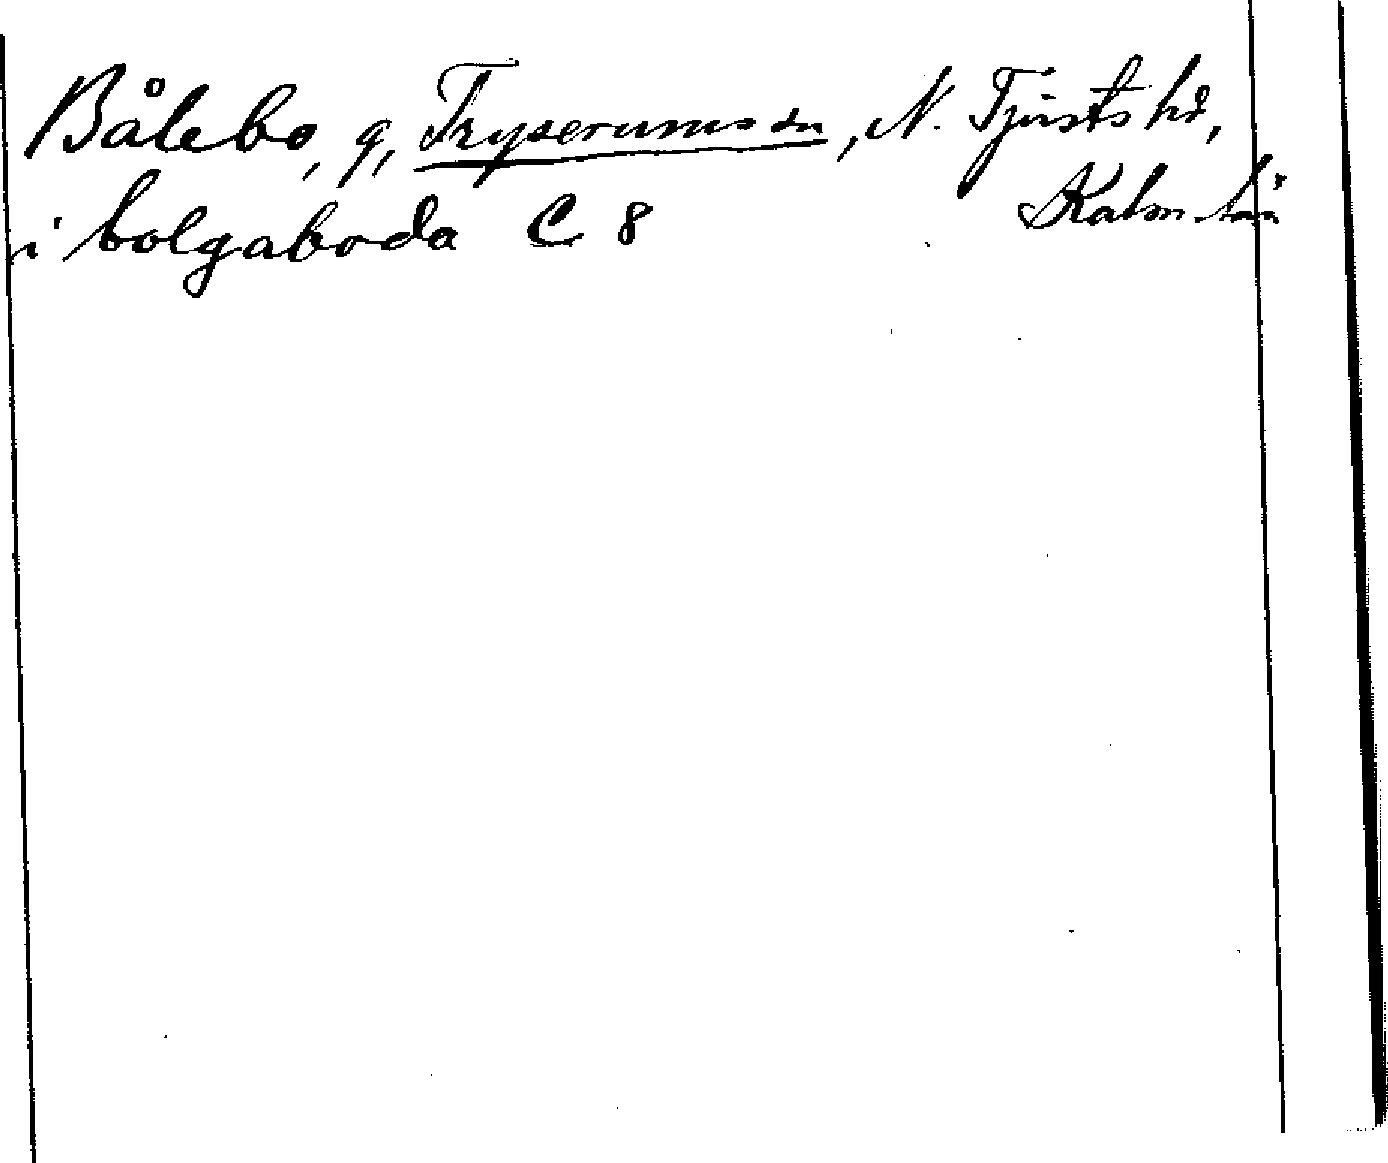 Bålebo, g, Tryserums sn, N. Tjusts hd,
Kalm. län
i bolgaboda C 8